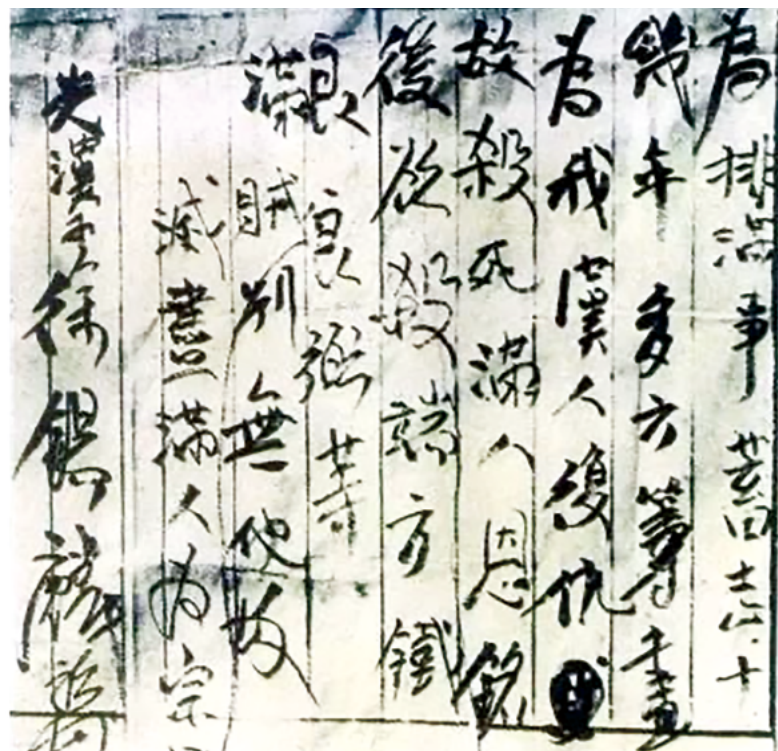 為排滿事蓄志幾十
幾年多方籌畫
為我漢人復仇
故殺死滿人恩銘
後欲殺端方鐵
良良弼等
滿賊別無他故
滅盡滿人為宗
光漢子徐錫麟